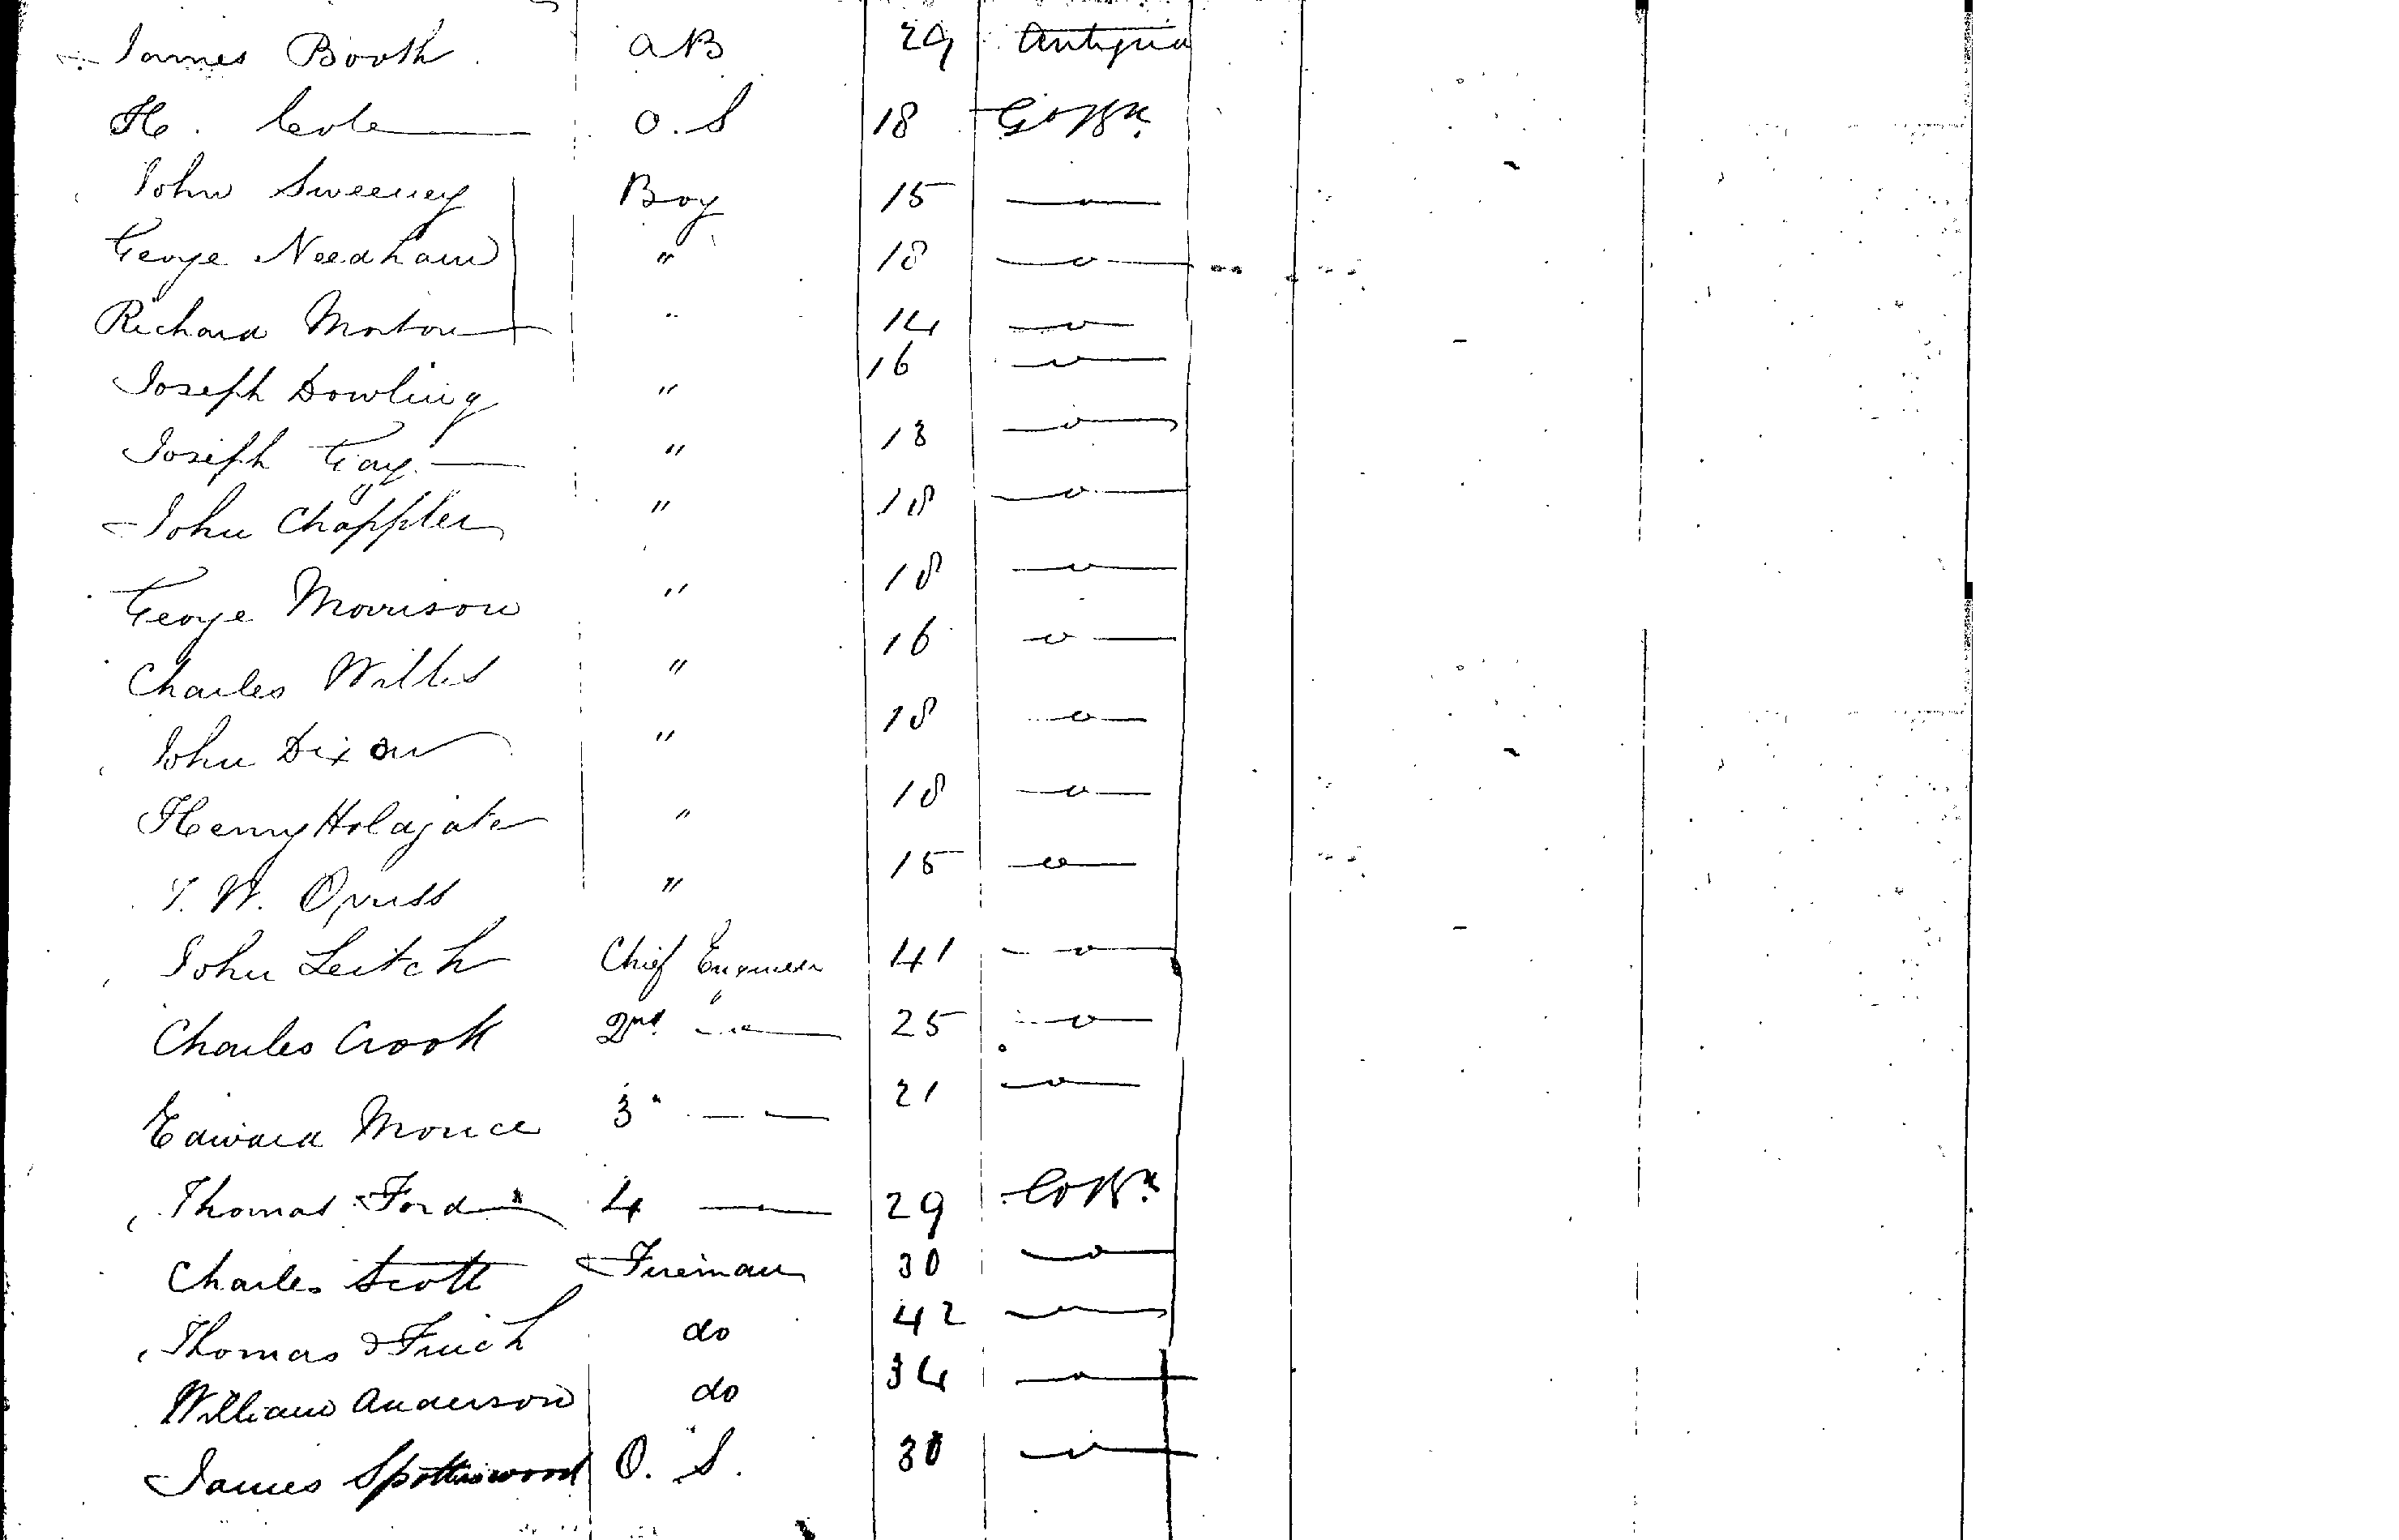 James Booth AB 29 Antigua
H. Cole O.S 18 Gt Bn
John Sweeney Boy 15 — " —
George Needham " 18 — " —
Richard Morton " 14 — " —
Joseph Dowling " 16 — " —
Joseph Gay " 18 — " —
John Chappler " 18 — " —
George Morrison " 18 — " —
Charles Willis " 16 — " —
John Dixon " 18 — " —
Henry Holdgate " 18 — " —
W. " 15 — " —
John Leitch Chief Engineer 41 — " —
Charles Crook 2nd — " — 25 — " —
Edward 3" — — 21 — " —
Thomas Ford 4 — 29 Gt Bn
Charles Scott Fireman 30 — " —
Thomas Finch do 42 — " —
William Anderson do 34 — " —
James Spottiswood O. S. 30 — " —